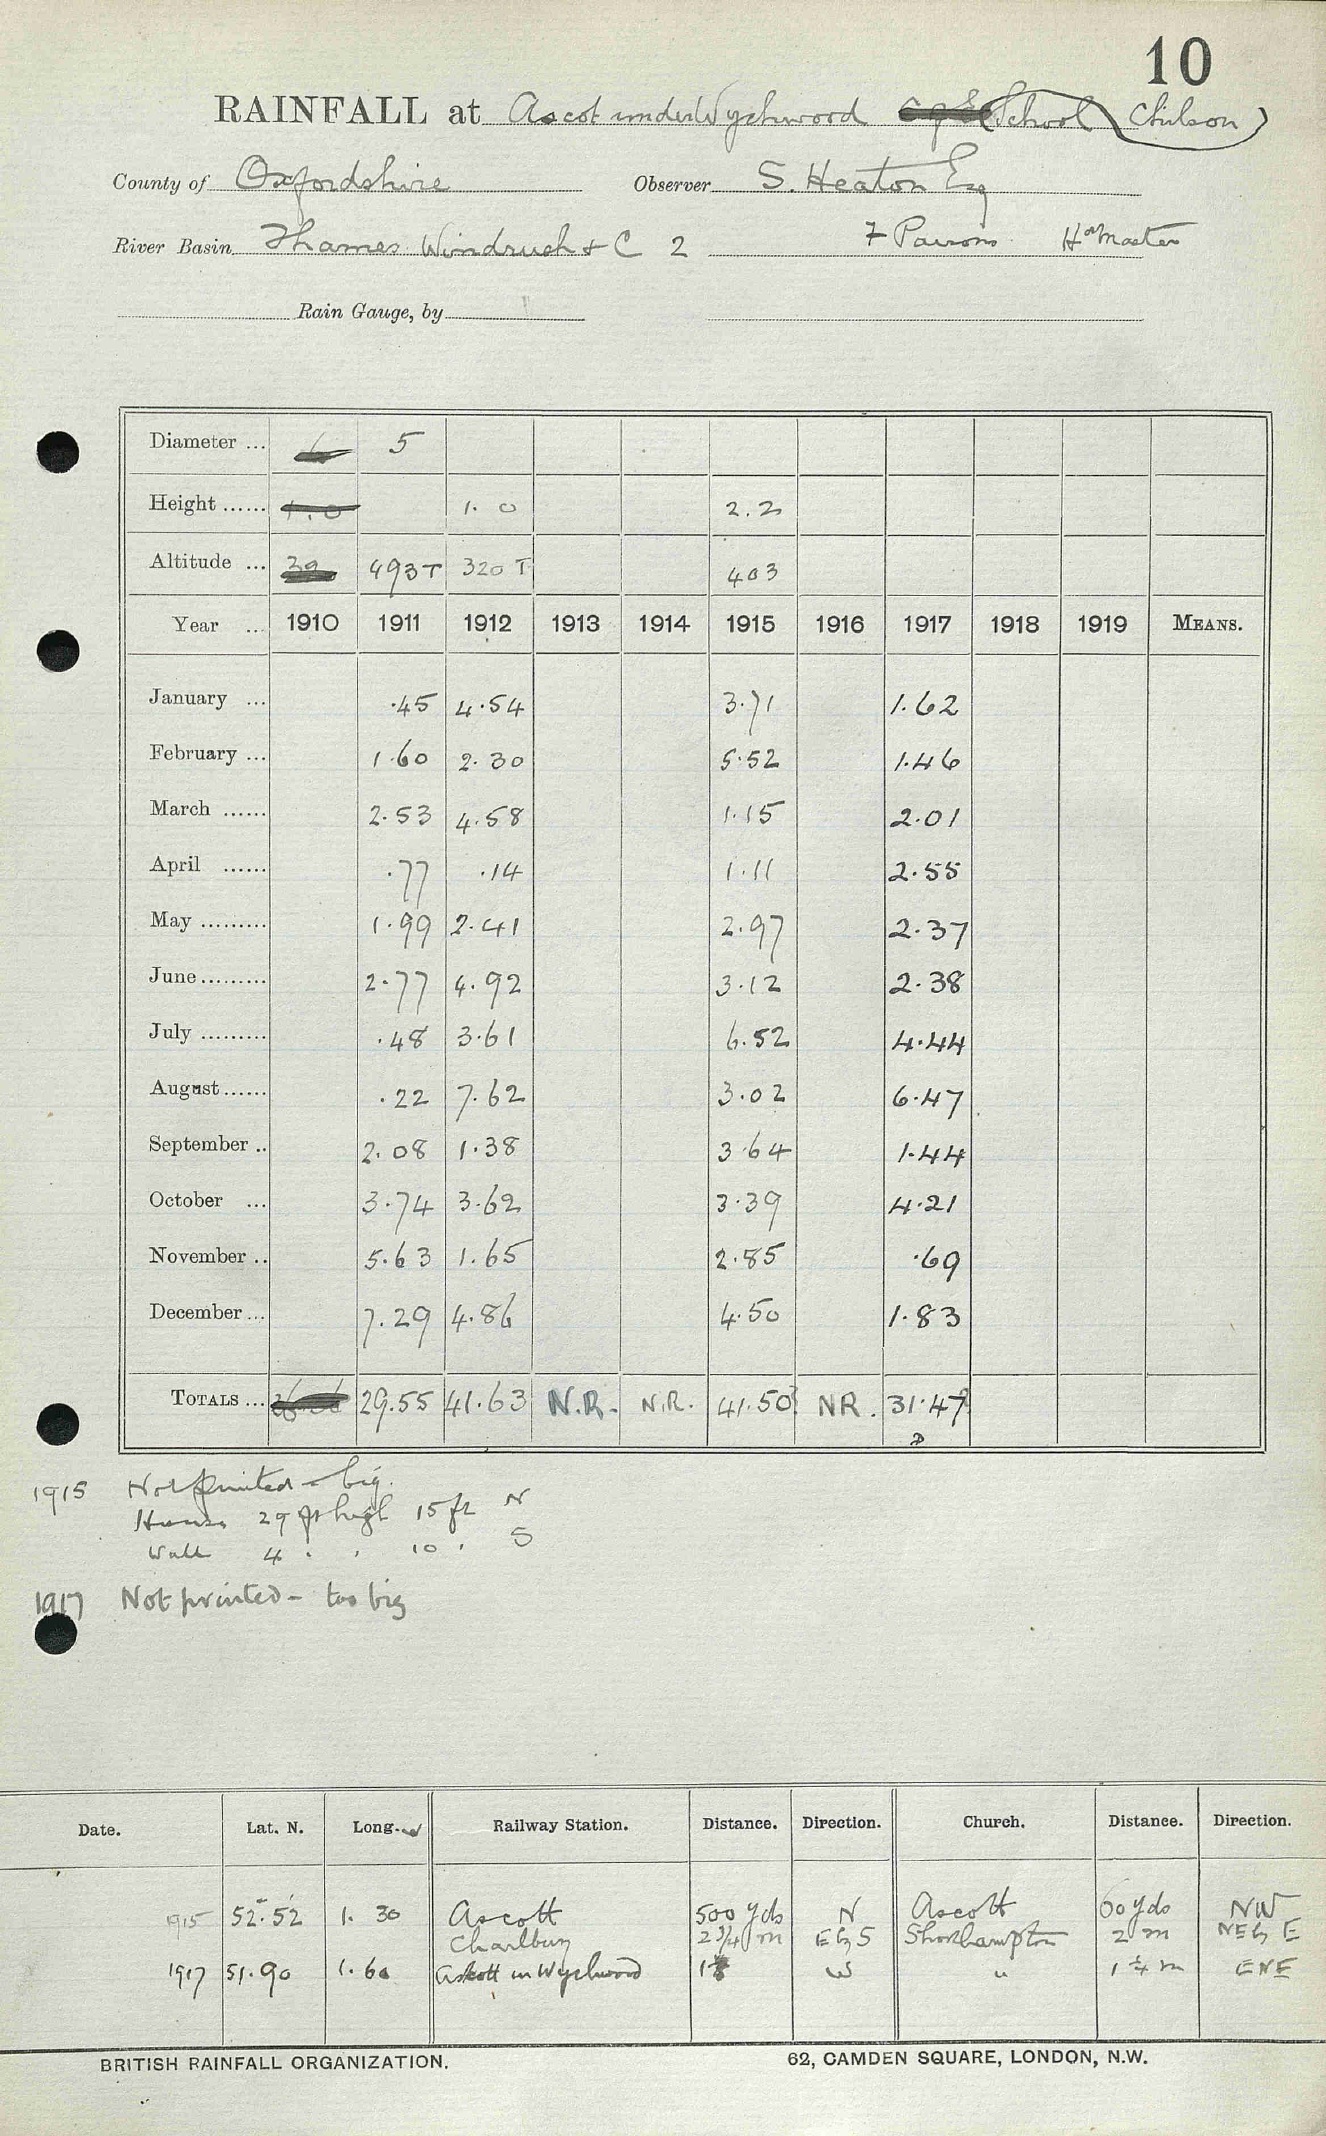 10
RAINFALL at Ascot under Wychwood School (Chilson)
County of Oxfordshire Observer S. Heaton Esq
River Basin Thames Windrush & C 2 F Parsons Hd Master
Rain Gauge, by
Diameter ... 5
Height ...... 1.0 1.0 2.2
Altitude ... 493T 320T 403
Year ... 1910 1911 1912 1913 1914 1915 1916 1917 1918 1919 MEANS.
January ... .45 4.54 3.71 1.62
February ... 1.60 2.30 5.52 1.46
March ...... 2.53 4.58 1.15 2.01
April ...... .77 .14 1.11 2.55
May ......... 1.99 2.41 2.97 2.37
June ......... 2.77 4.92 3.12 2.38
July ......... .48 3.61 6.52 4.44
August ...... .22 7.62 3.02 6.47
September .. 2.08 1.38 3.64 1.44
October ... 3.74 3.62 3.39 4.21
November .. 5.63 1.65 2.85 .69
December ... 7.29 4.86 4.50 1.83
TOTALS ... 29.55 41.63 N.R. N.R. 41.50? NR. 31.47?
1915 Not printed - big.
House 29 ft high 15 ft N
Wall 4 " " 10 " S
1917 Not printed - too big
Date. Lat. N. Long. W Railway Station. Distance. Direction. Church. Distance. Direction.
1915 52.52 1.30 Ascott 500 yds N Ascott 60 yds NW
Charlbury 2 3/4 m E by S Shorthampton 2 m NE by E
1917 51.90 1.60 Ascott un Wychwood W " 1 1/4 m ENE
BRITISH RAINFALL ORGANIZATION. 62, CAMDEN SQUARE, LONDON, N.W.